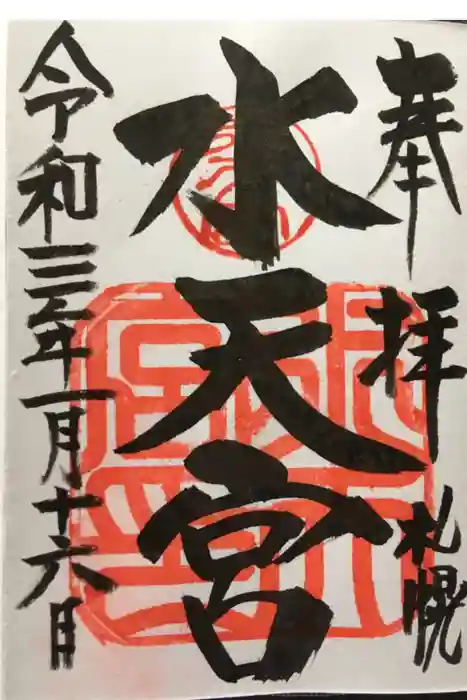 奉拝 札幌
水天宮
令和三年一月十六日